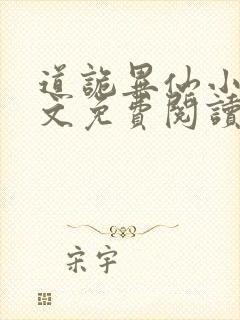 道詭異仙小
文免費閱讀
宋宇